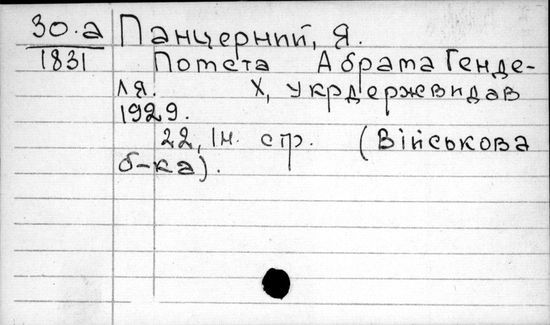 30.а Панцерний, Я.
1831 Помста Абрама Генде-
ля. Х, Укрдержвидав
1929.
22, Iн. стр. (Військова
б-ка).